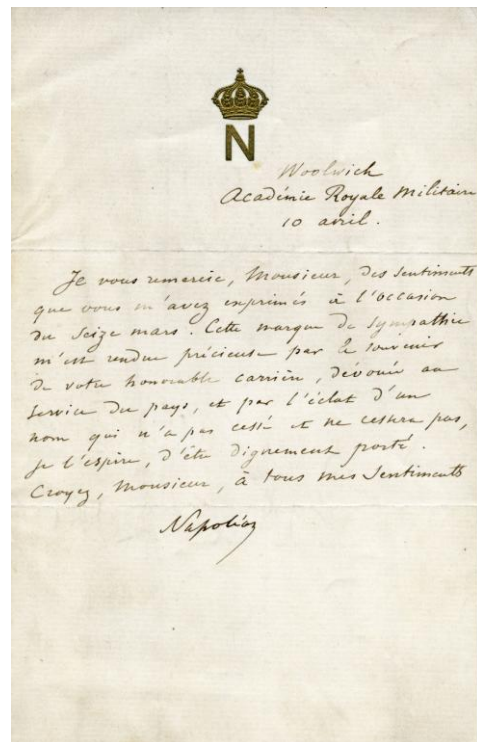 N
Woolwich
Académie Royale Militaire
10 avril.
Je vous remercie, Monsieur, des Sentiments
que vous m'avez exprimés à l'occasion
du Seize mars. Cette marque de Sympathie
m'est rendue précieuse par le souvenir
de votre honorable carrière, dévouée au
service du pays, et par l'éclat d'un
nom qui n'a pas cessé et ne cessera pas,
je l'espère, d'être dignement porté.
Croyez, Monsieur, à tous mes Sentiments
Napoléon